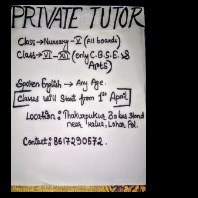 PRIVATE TUTOR
Class → Nursery - V (All boards)
Class → VI - XII (only C.B.S.E. &
Arts)
Spoken English → Any Age.
Classes will Start from 1st April
Location : Thakurpukur 3A bus Stand
near Kalua, Lohar Pol.
Contact : 8617290572.